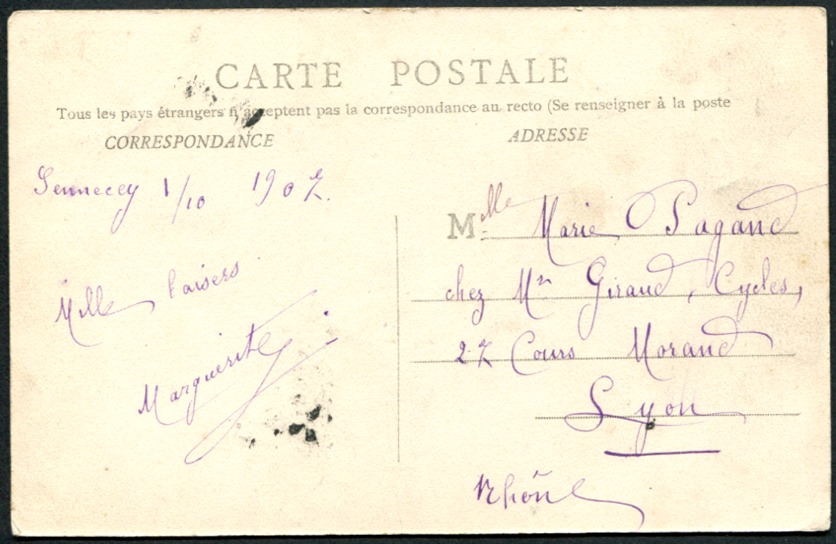 CARTE POSTALE
Tous les pays étrangers n'acceptent pas la correspondance au recto (Se renseigner à la poste
CORRESPONDANCE
ADRESSE
Sennecey 1/10 1907.
Mille baisers.
Marguerite
Mlle Marie Pagand
chez Mr Giraud, Cycles,
27 Cours Morand
Lyon
Rhône